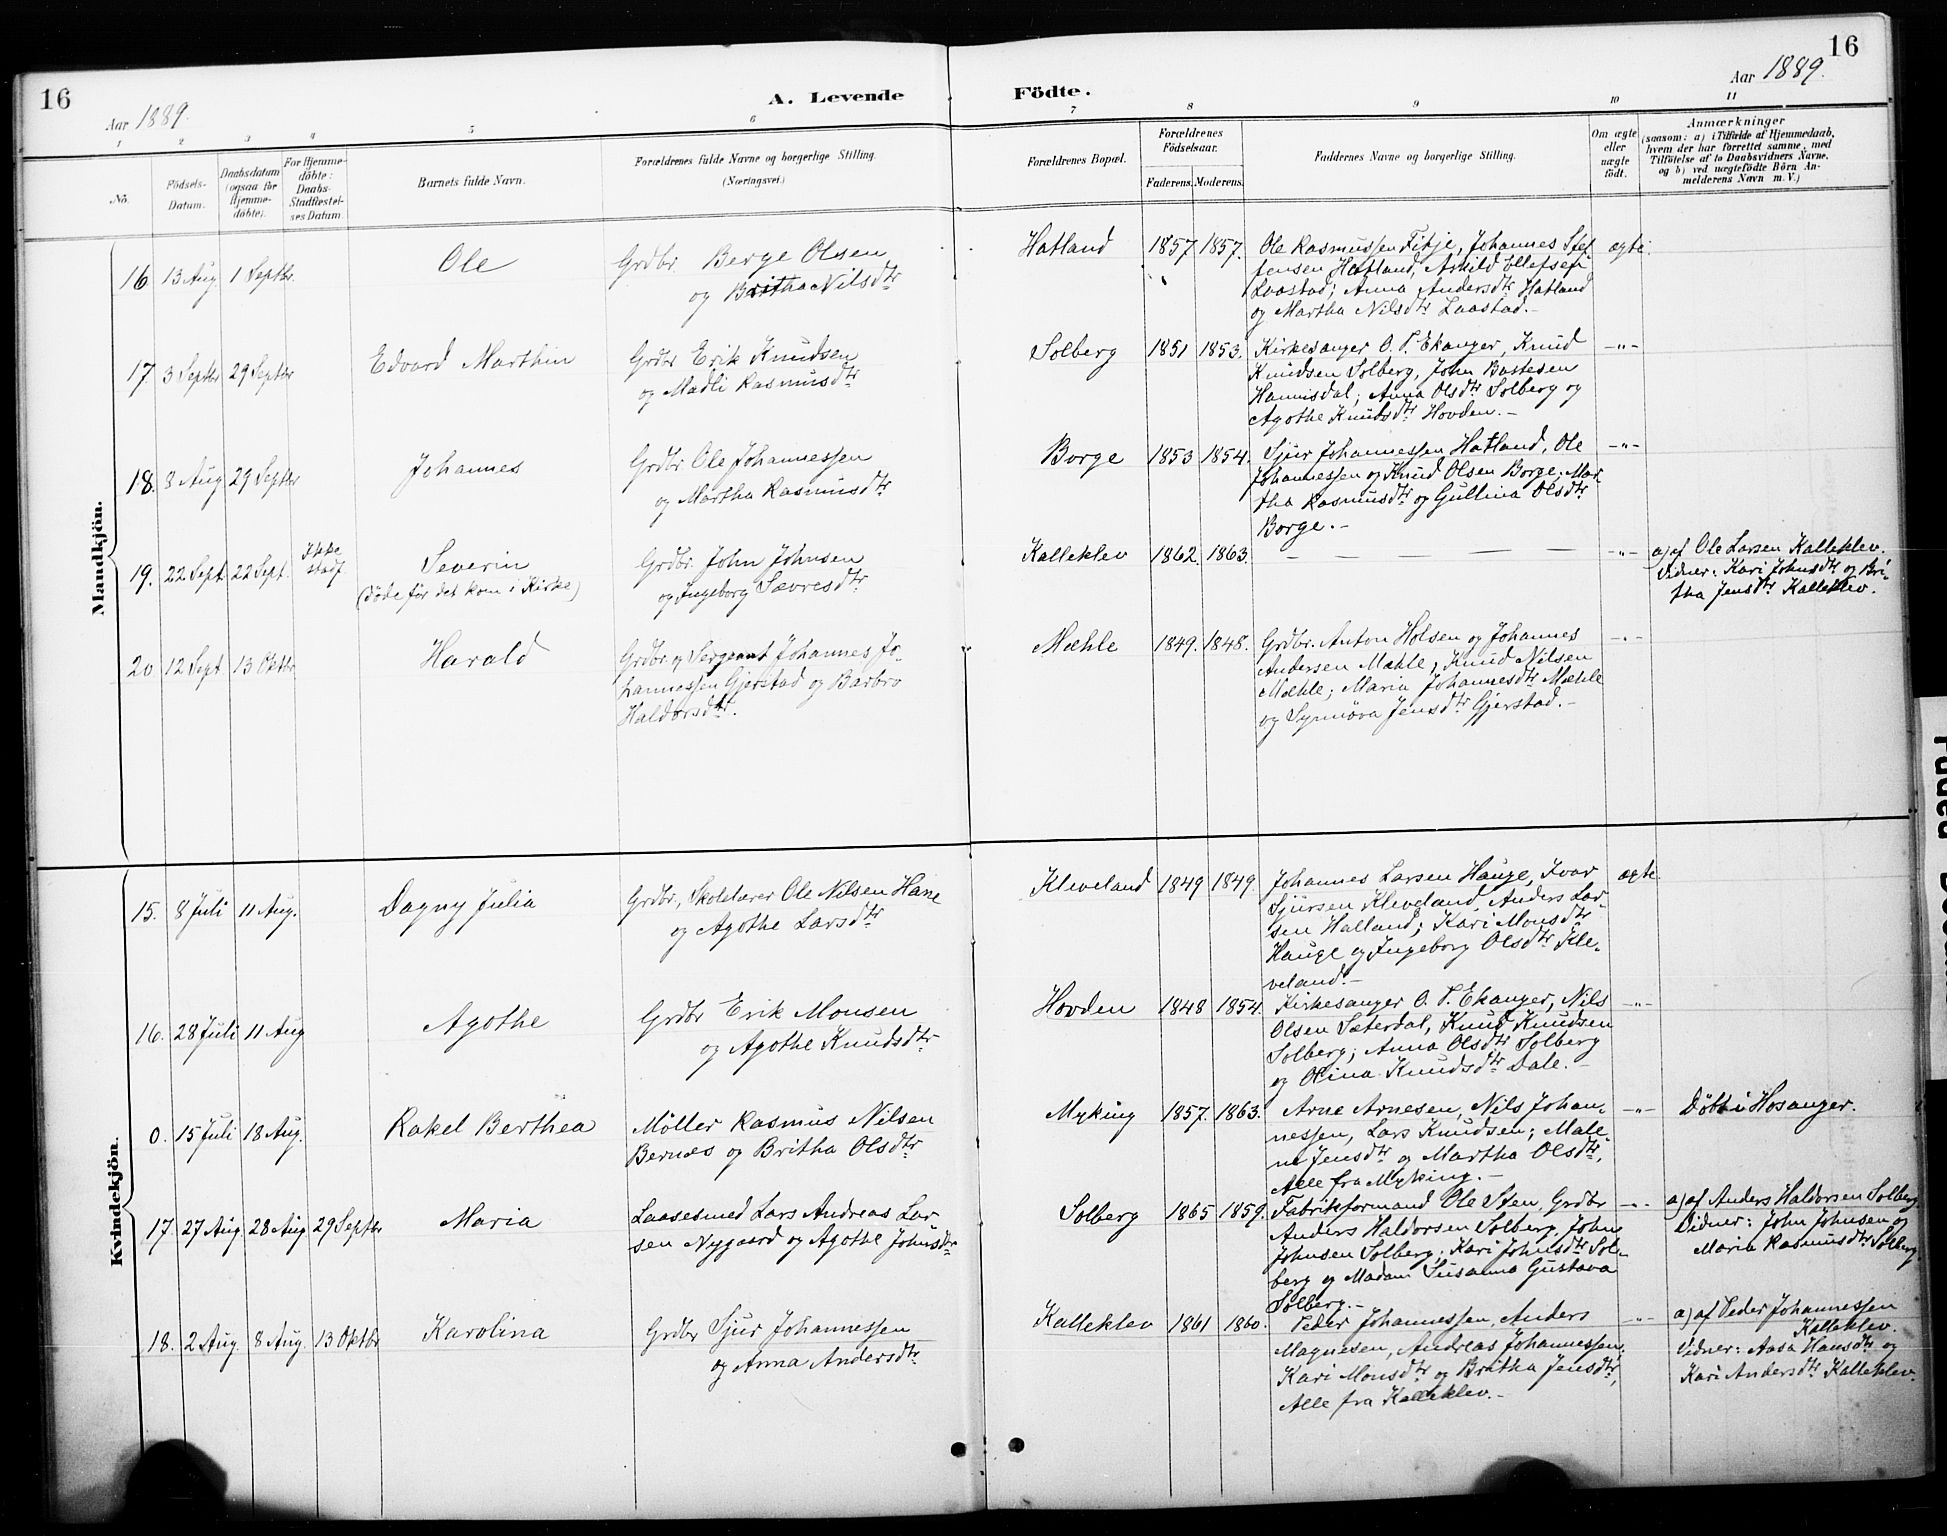 16
Aar 1889.
A. Levende
Födte.
Aar 1889.
16
1 2 3 4 5 6 7 8 9 10 11
No.
Födsels-
Datum.
Daabsdatum
(ogsaa for
Hjemme-
döbte).
For Hjemme-
döbte:
Daabs-
Stadfæstel-
ses Datum.
Barnets fulde Navn.
Forældrenes fulde Navne og borgerlige Stilling.
(Næringsvei.)
Forældrenes Bopæl.
Forældrenes
Födselsaar.
Faderens. Moderens.
Faddernes Navne og borgerlige Stilling.
Om ægte
eller
uægte
født.
Anmærkninger
(saasom: a) i Tilfælde af Hjemmedaab,
hvem der har forrettet samme, med
Tilføielse af to Daabsvidners Navne,
og b) ved uægtefödte Börn An-
melderens Navn m. V.)
Mandkjön.
16 13 Aug 1 Septbr. Ole
Grdbr. Berge Olsen
og Britha Nilsdtr
Hatland 1857 1857.
Ole Rasmussen Fitje, Johannes Stef
fensen Hatland, Arnild Ellefsen
Laastad; Anna Andersdtr Hatland
og Martha Nilsdtr Laastad.-
ægte
17 3 Septbr 29 Septbr Edvard Marthin
Grdbr Erik Knudsen
og Madli Rasmusdtr
Solberg 1851 1853.
Kirkesanger O. T. Ekanger, Knud
Knudsen Solberg, John Bastesen
Hannisdal; Anna Olsdtr Solberg og
Agothe Knudsdtr Hovden.-
-"-
18. 8 Aug 29 Septbr Johannes
Grdbr. Ole Johannessen
og Martha Rasmusdtr
Borge 1853 1854.
Sjur Johannessen Hatland, Ole
Johannessen og Knud Olsen Borge; Mar-
tha Rasmusdtr og Gullina Olsdtr
Borge.-
-"-
19. 22 Sept. 22 Sept. Ikke
stadf.
Severin
(døde før det kom i Kirke)
Grdbr. John Johnsen
og Ingeborg Sævresdtr
Kalleklev 1862. 1863.
- - - - - -
-"-
a) af Ole Larsen Kalleklev.
Vidner: Kari Johnsdtr og Bri-
tha Jensdtr Kalleklev.
20 12 Sept. 13 Oktbr Harald
Grdbr. og Sergeant Johannes Jo-
hannessen Gjerstad og Barbro
Haldorsdtr.
Mæhle 1849. 1848.
Grdbr. Anton Holsen og Johannes
Andersen Mæhle, Knud Nilsen
Mæhle; Maria Johannesdtr Mæhle
og Synnøva Jensdtr Gjerstad.-
-"-
Kvindekjön.
15. 8 Juli 11 Aug. Dagny Julia
Grdbr., Skolelærer Ole Nilsen Hane
og Agothe Larsdtr
Kleveland 1849 1849.
Johannes Larsen Hauge, Ivar
Sjursen Kleveland, Anders Lar-
sen Halland; Kari Monsdtr
Hauge og Ingeborg Olsdtr Kle-
veland.-
ægte.
16. 28 Juli 11 Aug Agothe
Grdbr Erik Monsen
og Agothe Knudsdtr
Hovden 1848 1854.
Kirkesanger O. T. Ekanger, Nils
Olsen Sæterdal, Knud Knudsen
Solberg; Anna Olsdtr Solberg
og Olina Knudsdtr Dale.-
-"-
0. 15 Juli 18 Aug. Rakel Berthea
Møller Rasmus Nilsen
Bernes og Britha Olsdtr
Myking 1857. 1863.
Arne Arnesen, Nils Johan-
nessen, Lars Knudsen; Male-
ne Jensdtr og Martha Olsdtr,
Alle fra Myking.-
-"-
Døbt i Hosanger.
17. 27 Aug 28 Aug 29 Septbr Maria
Laasesmed Lars Andreas Lar
sen Nygaard og Agothe Johnsdtr
Solberg 1865 1859.
Fabrikformand Ole Sten, Grdbr
Anders Haldorsen Solberg, John
Johnsen Solberg; Kari Johnsdtr Sol-
berg og Madam Susanna Gustava
Solberg.-
-"-
a) af Anders Haldorsen Solberg.
Vidner: John Johnsen og
Maria Rasmusdtr Solberg.
18. 2 Aug. 8 Aug. 13 Oktbr Karolina
Grdbr Sjur Johannessen
og Anna Andersdtr
Kalleklev 1861 1860.
Peder Johannessen, Anders
Magnesen, Andreas Johannessen;
Kari Monsdtr og Britha Jensdtr,
Alle fra Kalleklev.-
-"-
a) af Peder Johannessen
Kalleklev.
Vidner: Aasa Hansdtr og
Kari Andersdtr Kalleklev.